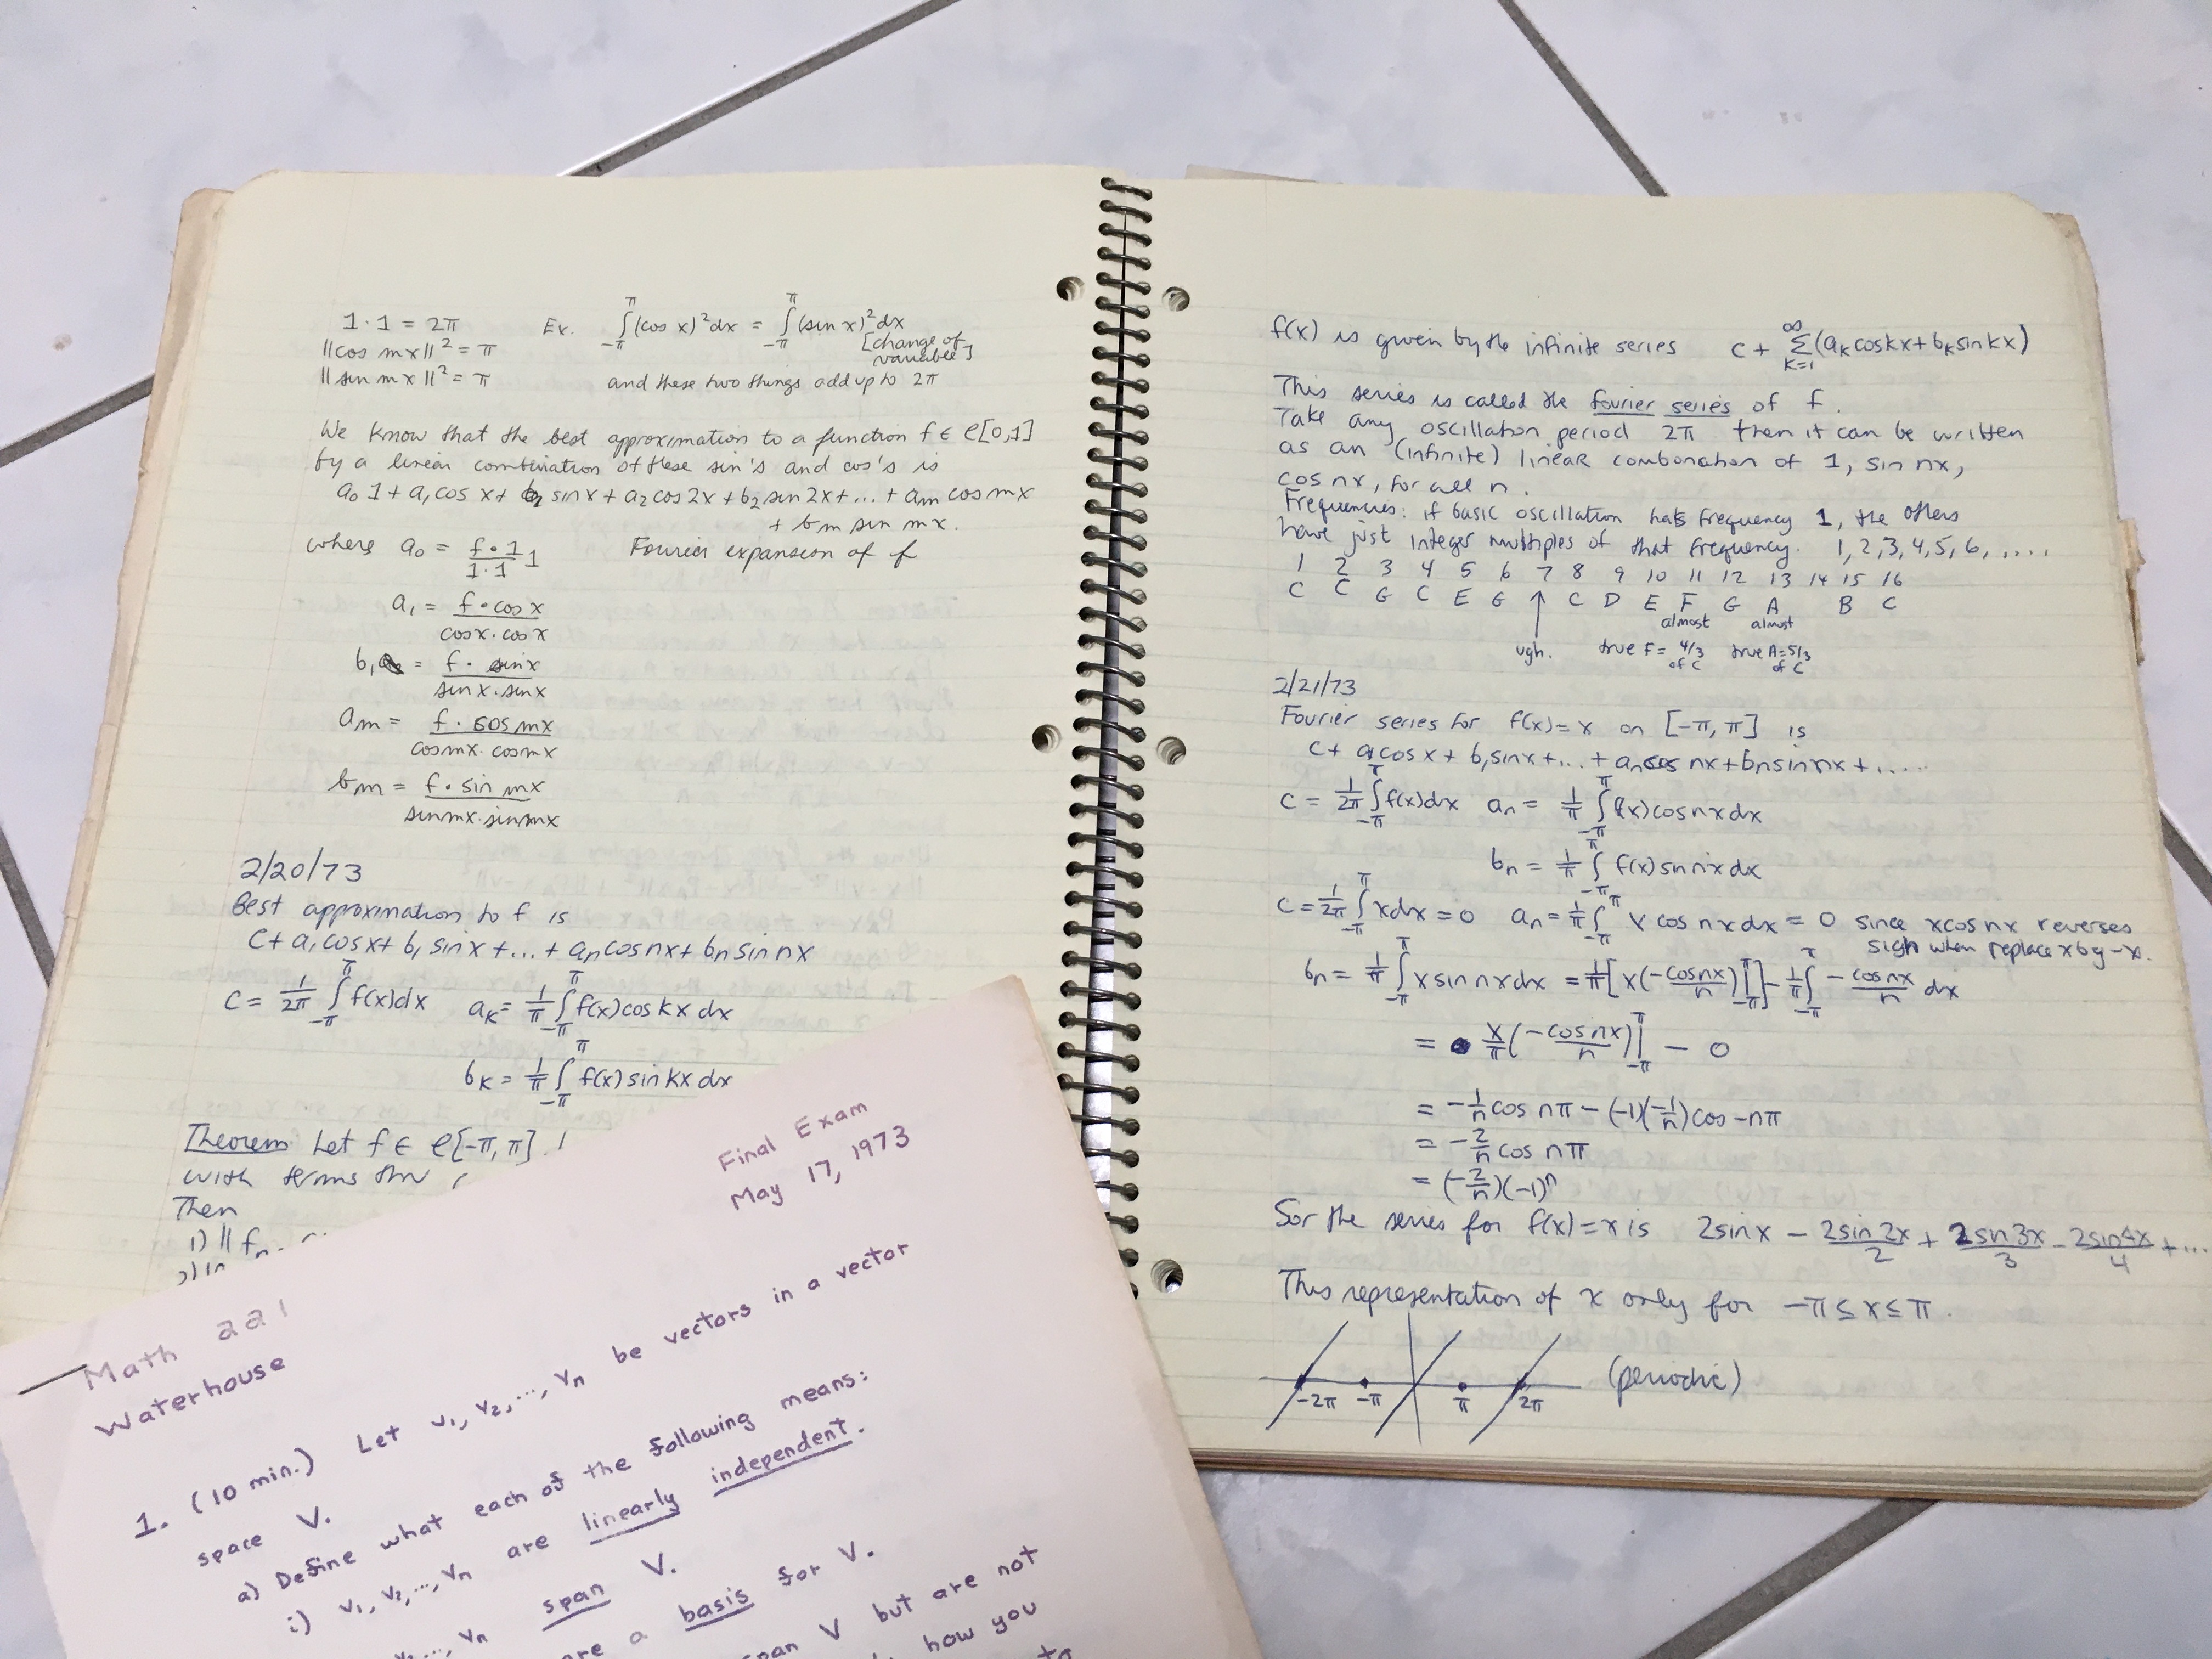 1·1 = 2π Ex. ∫_{-π}^{π} (cos x)² dx = ∫_{-π}^{π} (sin x)² dx
||cos mx||² = π [change of variable]
||sin mx||² = π and these two things add up to 2π
We know that the best approximation to a function f ∈ C[0,1]
by a linear combination of these sin's and cos's is
a₀ 1 + a₁ cos x + b₁ sin x + a₂ cos 2x + b₂ sin 2x + ... + am cos mx
+ bm sin mx.
where a₀ = f·1/1·1 1 Fourier expansion of f
a₁ = f·cos x/cos x·cos x
b₁ = f·sin x/sin x·sin x
am = f·cos mx/cos mx·cos mx
bm = f·sin mx/sin mx·sin mx
2/20/73
Best approximation to f is
C + a₁ cos x + b₁ sin x + ... + an cos nx + bn sin nx
C = 1/2π ∫_{-π}^{π} f(x)dx aK = 1/π ∫_{-π}^{π} f(x) cos kx dx
bK = 1/π ∫_{-π}^{π} f(x) sin kx dx
Theorem Let f ∈ C[-π, π]
with terms thru
Then
1) || fn
f(x) is given by the infinite series C + Σ_{K=1}^{∞} (aK cos kx + bK sin kx)
This series is called the fourier series of f.
Take any oscillation period 2π then it can be written
as an (infinite) linear combonation of 1, sin nx,
cos nx, for all n.
Frequencies: if basic oscillation has frequency 1, the others
have just integer multiples of that frequency. 1,2,3,4,5,6, ....
1 2 3 4 5 6 7 8 9 10 11 12 13 14 15 16
C C G C E G ↑ C D E F G A B C
almost almost
ugh. true F = 4/3 of C true A = 5/3 of C
2/21/73
Fourier series for f(x) = x on [-π, π] is
C + a₁ cos x + b₁ sin x + ... + an cos nx + bn sin nx + .....
C = 1/2π ∫_{-π}^{π} f(x)dx an = 1/π ∫_{-π}^{π} f(x) cos nx dx
bn = 1/π ∫_{-π}^{π} f(x) sin nx dx
C = 1/2π ∫_{-π}^{π} x dx = 0 an = 1/π ∫_{-π}^{π} x cos nx dx = 0 since x cos nx reverses
sign when replace x by -x.
bn = 1/π ∫_{-π}^{π} x sin nx dx = 1/π [x(-cos nx/n)|_{-π}^{π}] - 1/π ∫_{-π}^{π} -cos nx/n dx
= x/π (-cos nx/n)|_{-π}^{π} - 0
= -1/n cos nπ - (-1)(-1/n) cos -nπ
= -2/n cos nπ
= (-2/n)(-1)ⁿ
So the series for f(x) = x is 2sin x - 2sin 2x/2 + 2sin 3x/3 - 2sin 4x/4 + ...
This representation of x only for -π ≤ x ≤ π.
-2π -π π 2π (periodic)
Final Exam
May 17, 1973
Math 221
Waterhouse
1. (10 min.) Let v₁, v₂, ..., vn be vectors in a vector
space V.
a) Define what each of the following means:
i) v₁, v₂, ..., vn are linearly independent.
vn span V.
are a basis for V.
span V but are not
how you